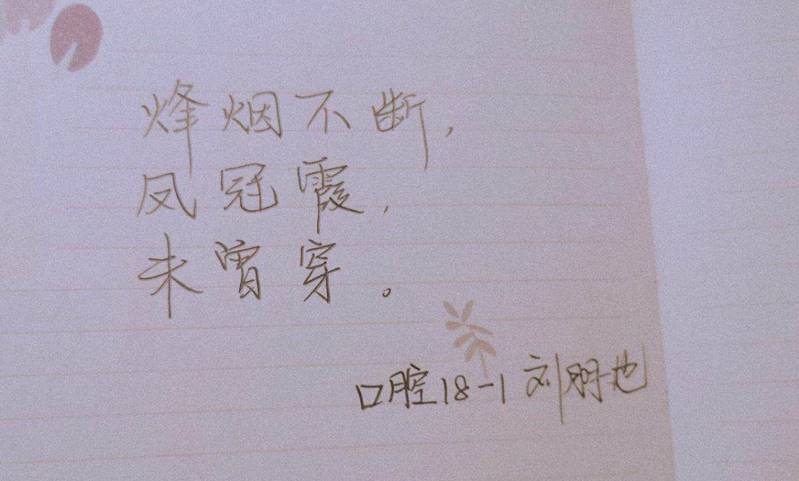 烽烟不断,
凤冠霞,
未曾穿。
口腔18-1 刘明也